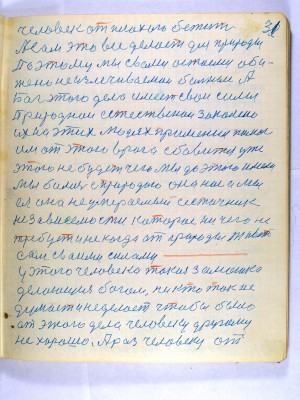 31
человек от плохого бежит
А сам это все делает для природы
Поэтому мы своми остаемся оби-
жено неизлечиваемой болных А
Бог этого дела имеет свои силы
Природной естественой законо
их на этих людех применил
им от этого врага сбавится уже
этого не будет чего мы до этого имели
Мы болися природою она нас имел
ея она не умераемый источник
независемости которая ни чего не
требует и некогда от природы живет
сам своими силами
у этого человека такая замашка
делающия богом, ни кто так не
думает и не делает чтобы было
от этого дела человеку другому
не хорошо. А раз человеку от